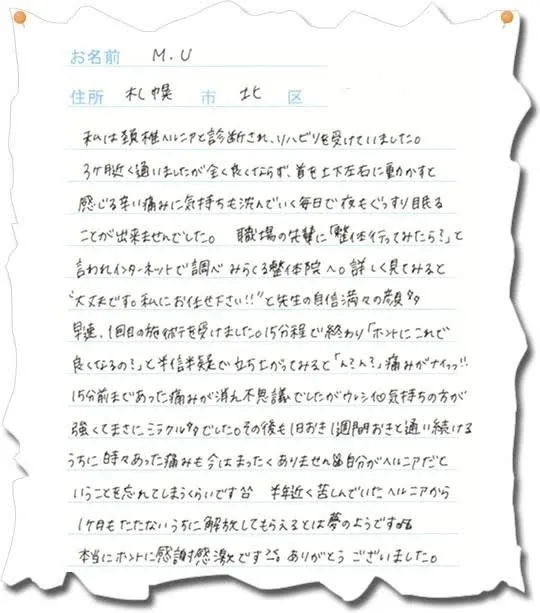 お名前 M.U
住所 札幌 市 北 区
私は頚椎ヘルニアと診断され、リハビリを受けていました。
3ヶ月近く通いましたが全く良くならず、首を上下左右に動かすと
感じる辛い痛みに気持ちも沈んでいく毎日で夜もぐっすり眠る
ことが出来ませんでした。 職場の先輩に「整体行ってみたら?」と
言われインターネットで調べみらくる整体院へ。詳しく見てみると
"大丈夫です。私にお任せ下さい!!"と先生の自信満々の顔
早速、1回目の施術を受けました。15分程で終わり「ホントにこれで
良くなるの?」と半信半疑で立ち上がってみると「ん?ん?」痛みがナイッッ!!
15分前まであった痛みが消え不思議でしたがウレシイ気持ちの方が
強くてまさにミラクルでした。その後も1日おき1週間おきと通い続ける
うちに時々あった痛みも今はまったくありません自分がヘルニアだと
いうことを忘れてしまうくらいです^^ 半年近く苦しんでいたヘルニアから
1ヶ月もたたないうちに解放してもらえるとは夢のようです
本当にホントに感謝感激です^^。ありがとうございました。